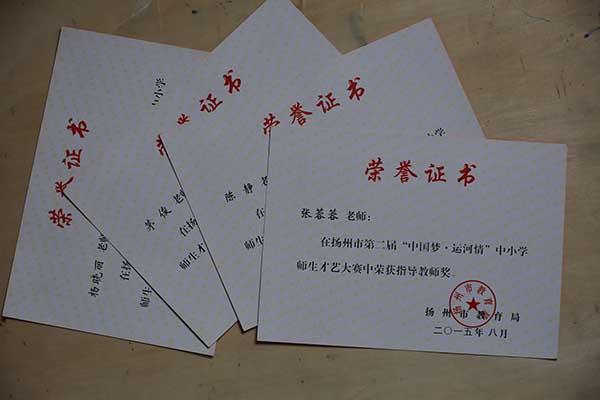 荣誉证书
杨晓丽 老师
在扬
师生
荣誉证书
茅俊 老师
在扬
师生才
中小学
荣誉证书
陈静 老
在
师生
荣誉证书
张蓉蓉 老师:
在扬州市第二届“中国梦·运河情”中小学
师生才艺大赛中荣获指导教师奖。
扬州市教育局
扬州市教育局
二〇一五年八月